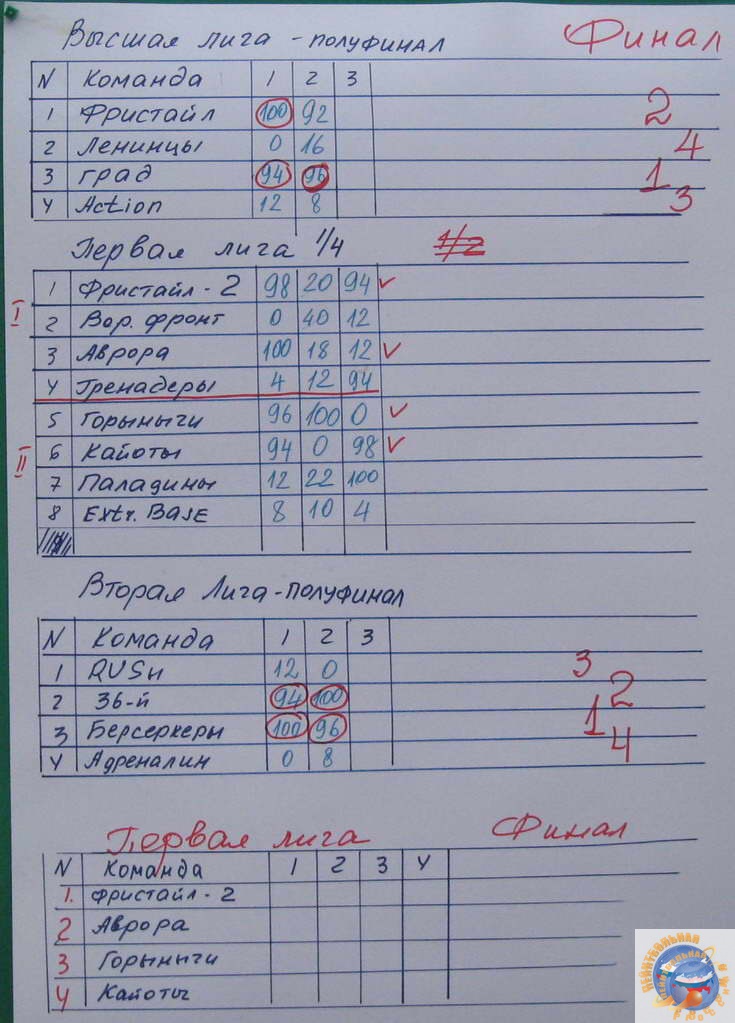 Высшая лига - полуфинал Финал
N Команда 1 2 3
1 Фристайл 100 92 2
2 Ленинцы 0 16 4
3 град 94 96 1
4 Action 12 8 3
Первая лига 1/4 1/2
1 Фристайл - 2 98 20 94 ✓
I
2 Вор. фронт 0 40 12
3 Аврора 100 18 12 ✓
4 Гренадеры 4 12 94
5 Горынычи 96 100 0 ✓
6 Кайоты 94 0 98 ✓
II
7 Паладины 12 22 100
8 Extr. Base 8 10 4
Вторая Лига - полуфинал
N Команда 1 2 3
1 RUSH 12 0 3
2 36-й 94 100 2
3 Берсеркеры 100 96 1
4 Адреналин 0 8 4
Первая лига Финал
N Команда 1 2 3 4
1. Фристайл - 2
2 Аврора
3 Горынычи
4 Кайоты